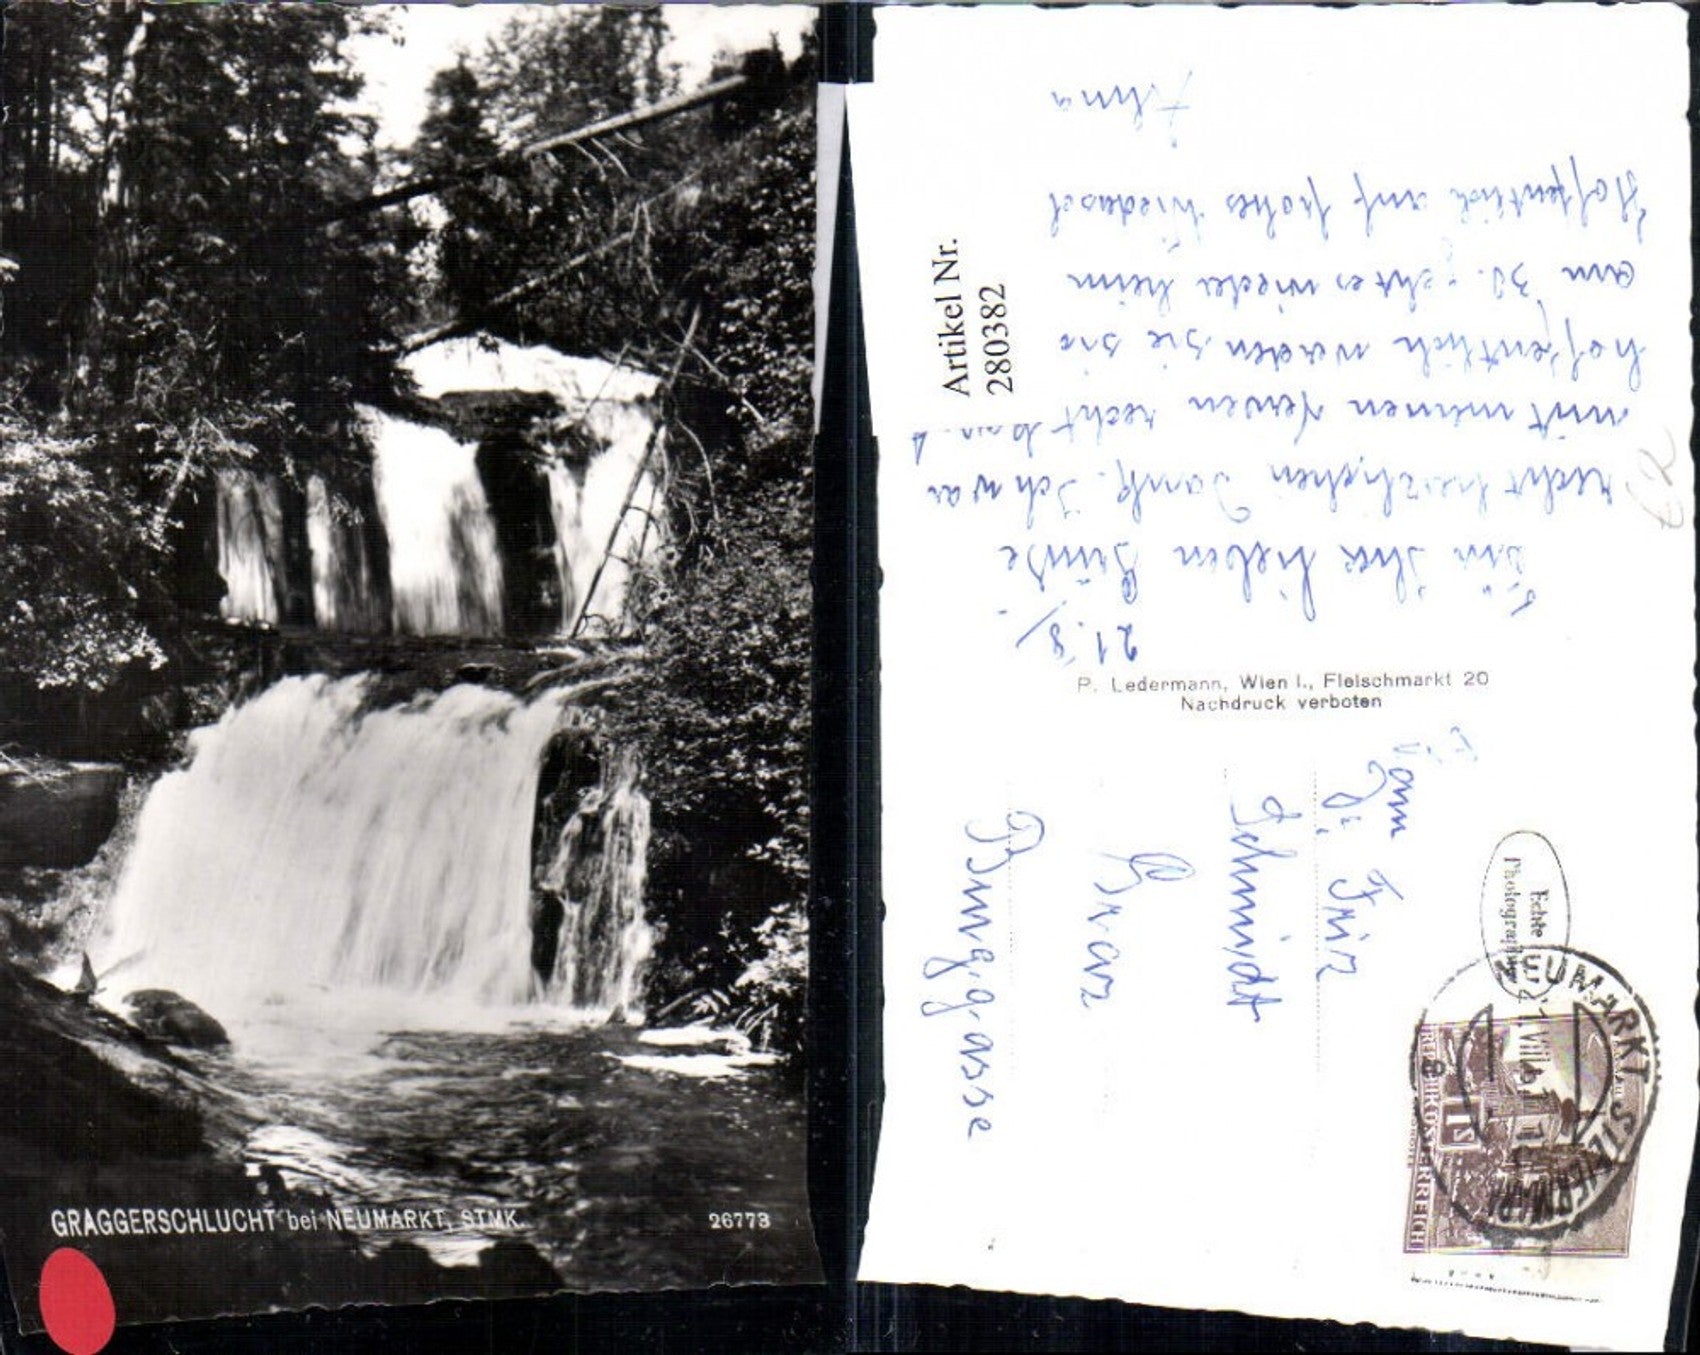 GRAGGERSCHLUCHT bei NEUMARKT, STMK.
26773
Artikel Nr.
280382
21. 8.
Für Ihre lieben Grüße
recht herzlichen Dank. Ich war
mit meinen Nerven recht
hoffentlich werden sie
am 30. geht es wieder heim
Hoffentlich auf frohes Wiedersehn
P. Ledermann, Wien I., Fleischmarkt 20
Nachdruck verboten
Fam
Schmidt
Graz
Burggasse
Echte
Photographie
NEUMARKT STEIERMARK
REPUBLIK ÖSTERREICH
1 S